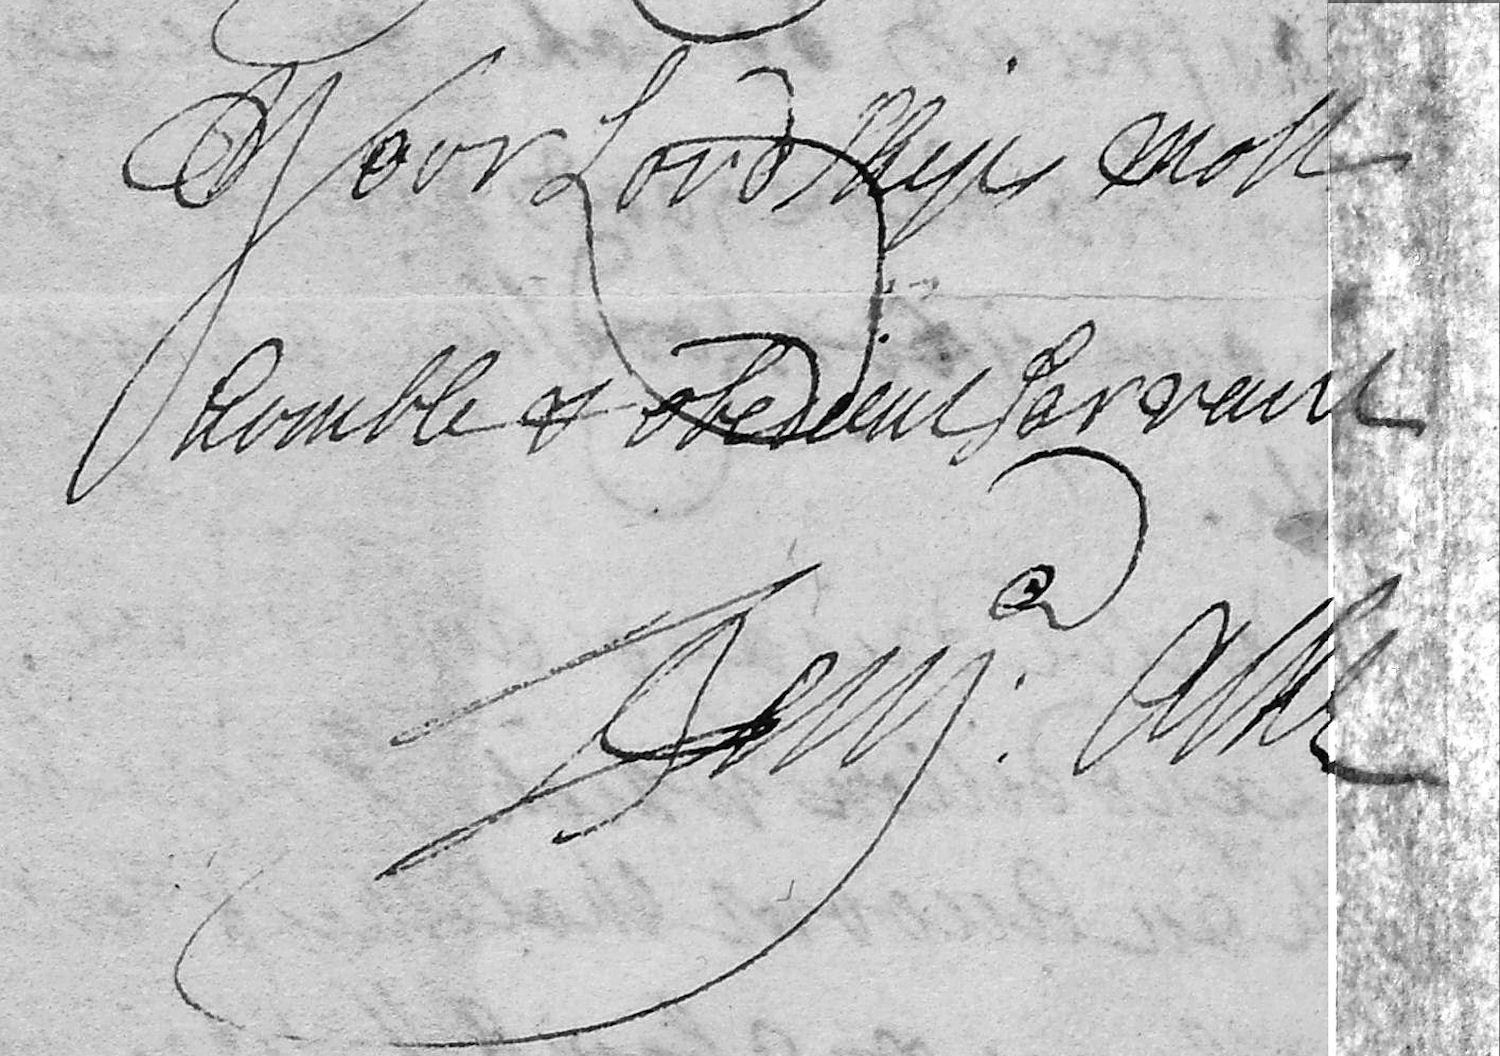 Your Lordships most
homble & obedient Servant
Benj: Ashe